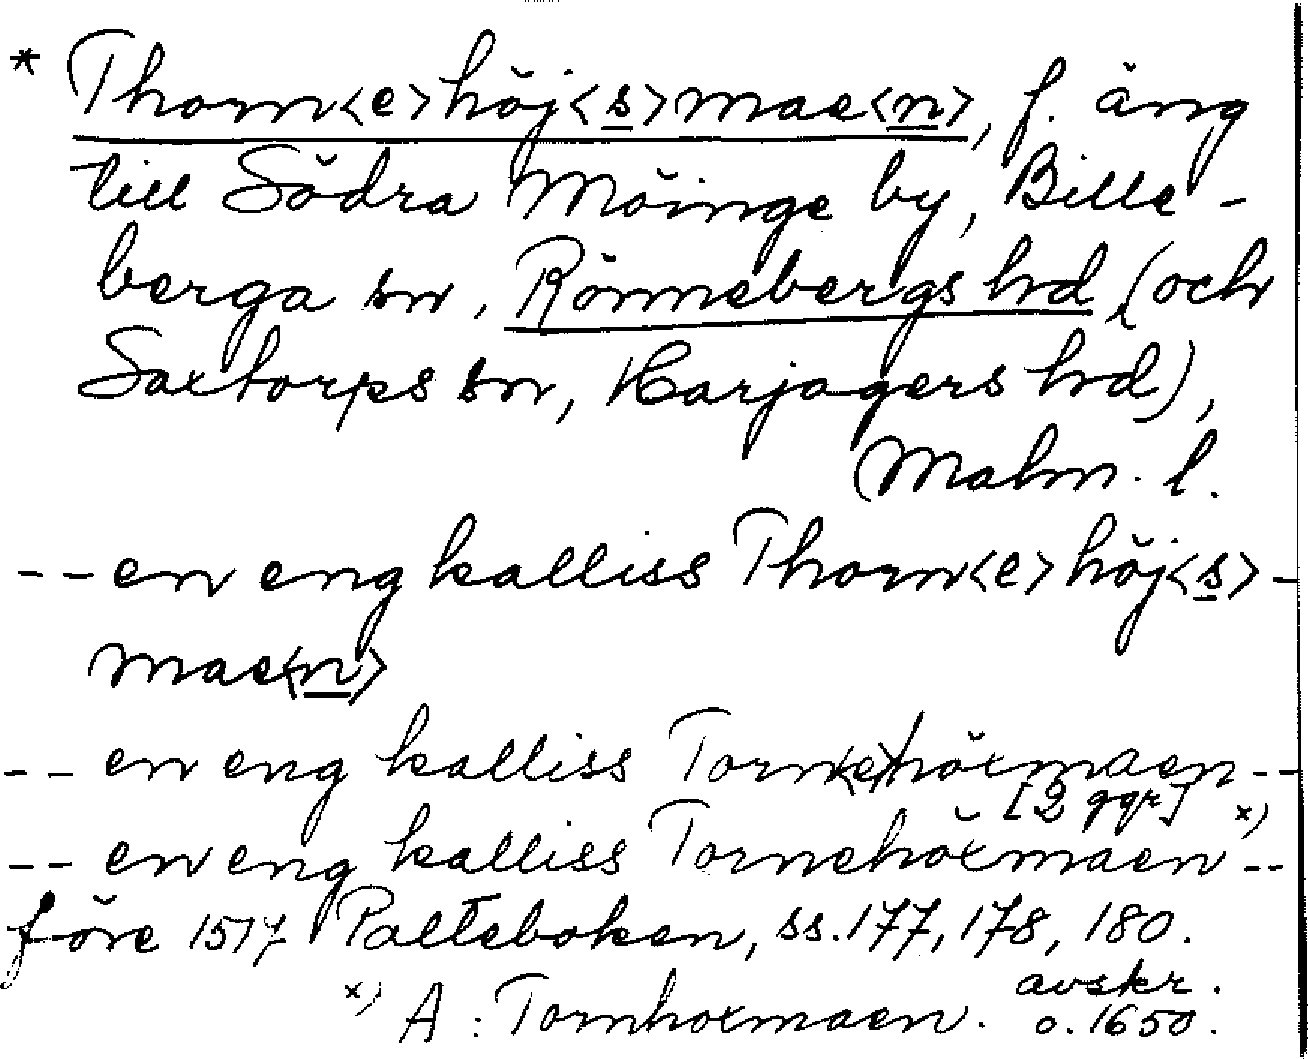 * Thorn<e>höj<s>mae<n>, f. äng
till Södra Möinge by, Bille-
berga sn, Rönnebergs hrd (och
Saxtorps sn, Harjagers hrd),
Malm. l.
-- en eng kalliss Thorn<e>höj<s>-
mae<n>
-- en eng kalliss Torn<e>höxmaen--
[2 ggr]
-- en eng kalliss Tornehöxmaen x) --
före 1517 Palteboken, ss. 177, 178, 180.
x) A: Tornhoxmaen. avskr.
o. 1650.